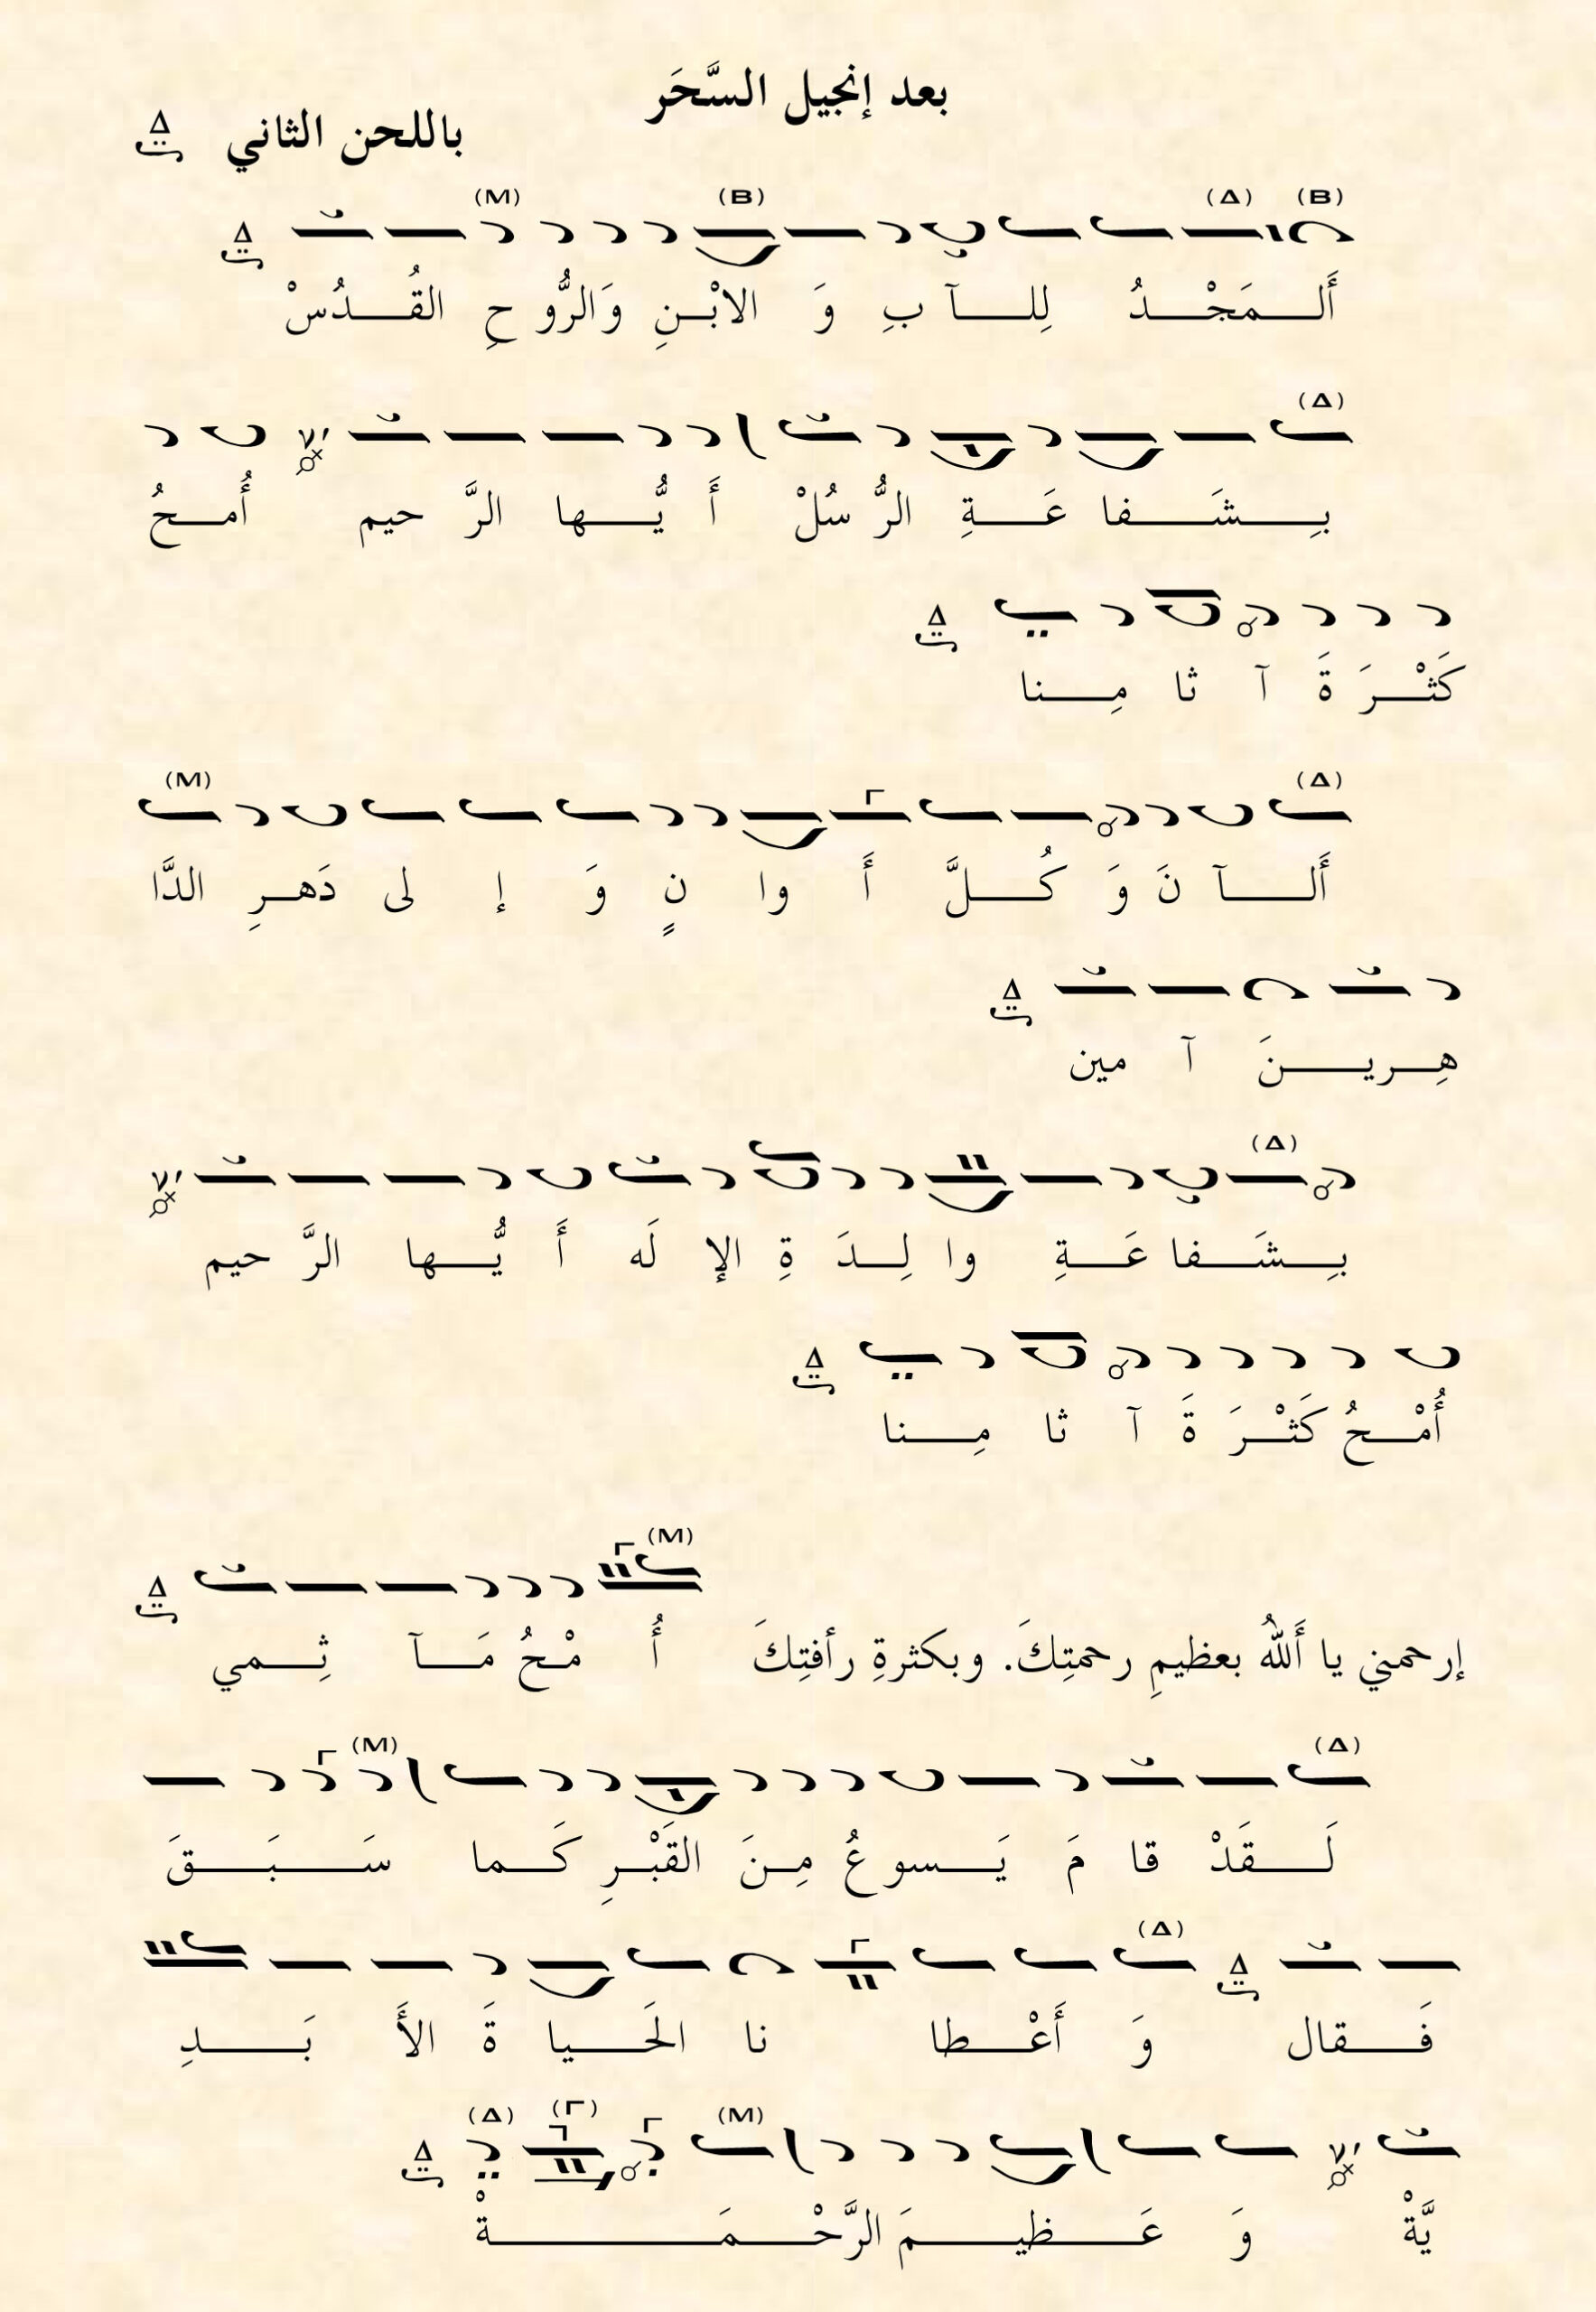 بعد إنجيل السَّحَر
باللحن الثاني
(B) (Δ) (B) (M)
أَلـمَجْـدُ لِلـآ بِ وَ الابْـنِ وَالرُّو حِ القُـدُسْ
(Δ)
بِـشَـفا عَـةِ الرُّ سُلْ أَ يُّـها الرَّ حيم أُمـحُ
كَثْـرَ ةَ آ ثا مِـنا
(Δ) (M)
أَلـآ نَ وَ كُـلَّ أَ وا نٍ وَ إ لى دَهـرِ الدَّا
هِـريـنَ آ مين
(Δ)
بِـشَـفا عَـةِ وا لِـدَ ةِ الإ لَه أَ يُّـها الرَّ حيم
أُمْـحُ كَثْـرَ ةَ آ ثا مِـنا
(M)
إرحمني يا أَللهُ بعظيمِ رحمتِكَ. وبكثرةِ رأفتِكَ أُ مْـحُ مَـآ ثِـمي
(Δ) (M)
لَـقَدْ قا مَ يَـسوعُ مِـنَ القَبْـرِ كَـما سَـبَـقَ
(Δ)
فَـقال وَ أَعْـطا نا الحَـيا ةَ الأَ بَـدِ
(M) (Γ) (Δ)
يَّةْ وَ عَـظيـمَ الرَّحْـمَـةْ